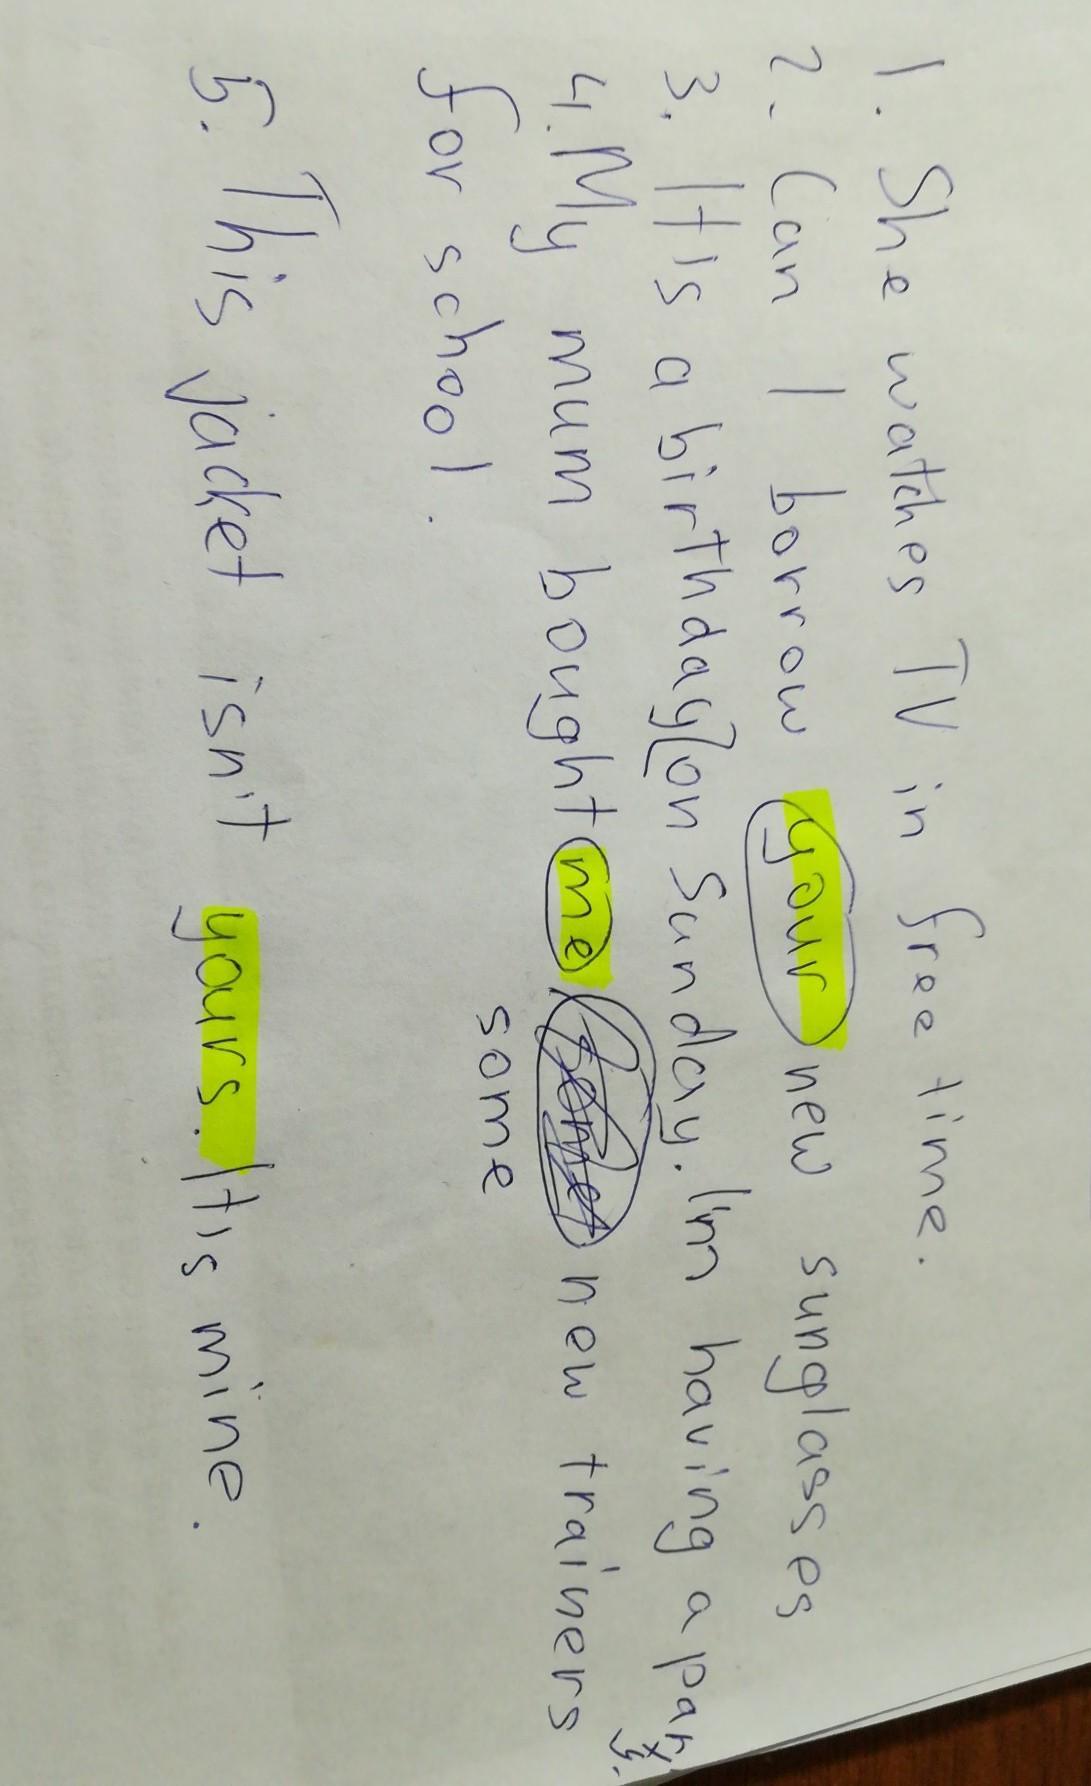 1. She watches TV in free time.
2. Can I borrow your new sunglasses
3. It is a birthday on Sunday. I'm having a party.
4. My mum bought me new trainers
some
for school.
5. This jacket isn't yours. It is mine.